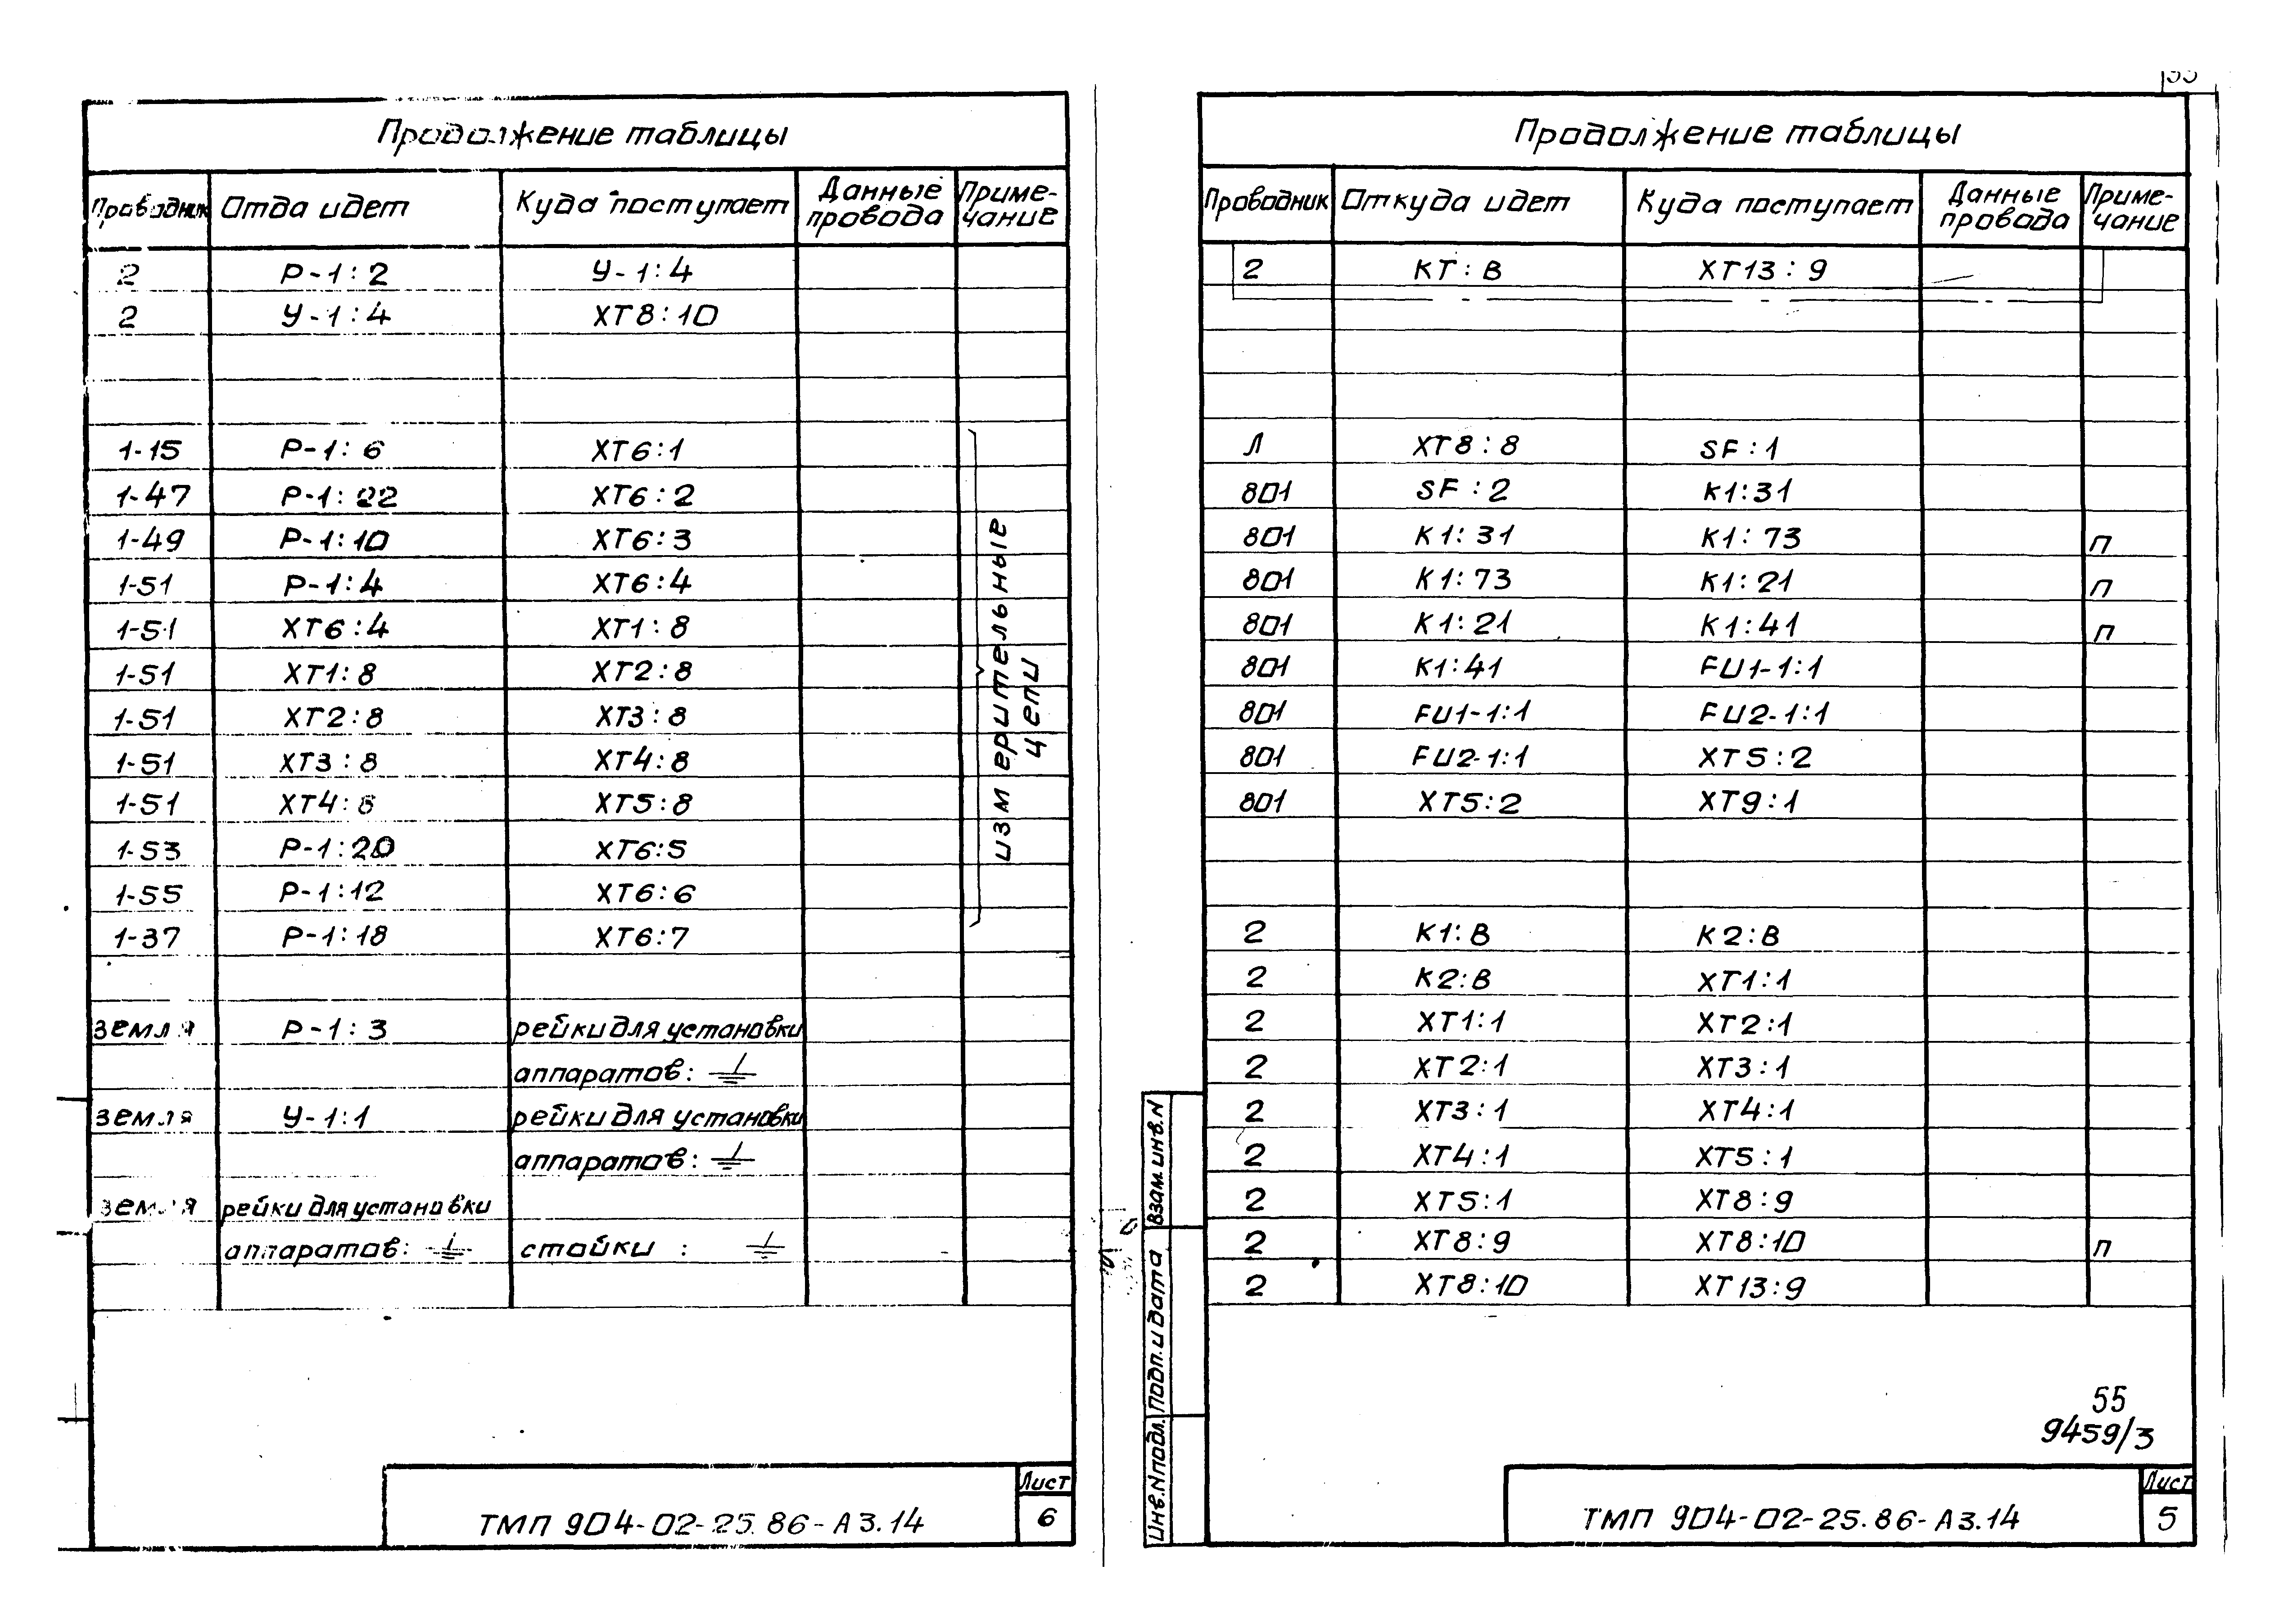 Продолжение таблицы
Проводник Отда идет Куда поступает Данные провода Приме-чание
2 Р-1:2 У-1:4
2 У-1:4 ХТ8:10
1-15 Р-1:6 ХТ6:1
1-47 Р-1:22 ХТ6:2
1-49 Р-1:10 ХТ6:3
1-51 Р-1:4 ХТ6:4
1-51 ХТ6:4 ХТ1:8
1-51 ХТ1:8 ХТ2:8
1-51 ХТ2:8 ХТ3:8
1-51 ХТ3:8 ХТ4:8
1-51 ХТ4:8 ХТ5:8
1-53 Р-1:20 ХТ6:5
1-55 Р-1:12 ХТ6:6
1-37 Р-1:18 ХТ6:7
измерительные
цепи
земля Р-1:3 рейки для установки
аппаратов:
земля У-1:1 рейки для установки
аппаратов:
земля рейки для установки
аппаратов: стойки :
ТМП 904-02-25.86-А3.14
Лист
6
Продолжение таблицы
Проводник Откуда идет Куда поступает Данные провода Приме-чание
2 КТ:В ХТ13:9
Л ХТ8:8 SF:1
801 SF:2 К1:31
801 К1:31 К1:73 п
801 К1:73 К1:21 п
801 К1:21 К1:41 п
801 К1:41 FU1-1:1
801 FU1-1:1 FU2-1:1
801 FU2-1:1 ХТ5:2
801 ХТ5:2 ХТ9:1
2 К1:В К2:В
2 К2:В ХТ1:1
2 ХТ1:1 ХТ2:1
2 ХТ2:1 ХТ3:1
2 ХТ3:1 ХТ4:1
2 ХТ4:1 ХТ5:1
2 ХТ5:1 ХТ8:9
2 ХТ8:9 ХТ8:10 п
2 ХТ8:10 ХТ13:9
Взам.инв.N
Подп.и дата
Инв.Nподл.
55
9459/3
ТМП 904-02-25.86-А3.14
Лист
5